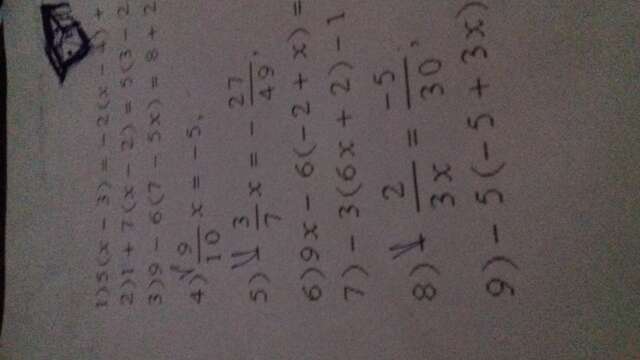 1) 5(x - 3) = -2(x - 4) +
2) 1 + 7(x - 2) = 5(3 - 2
3) 9 - 6(7 - 5x) = 8 + 2
4) 9/10 x = -5,
5) 3/7 x = - 27/49,
6) 9x - 6(-2 + x) =
7) - 3(6x + 2) - 1
8) 2/3x = -5/30;
9) - 5(-5 + 3x)